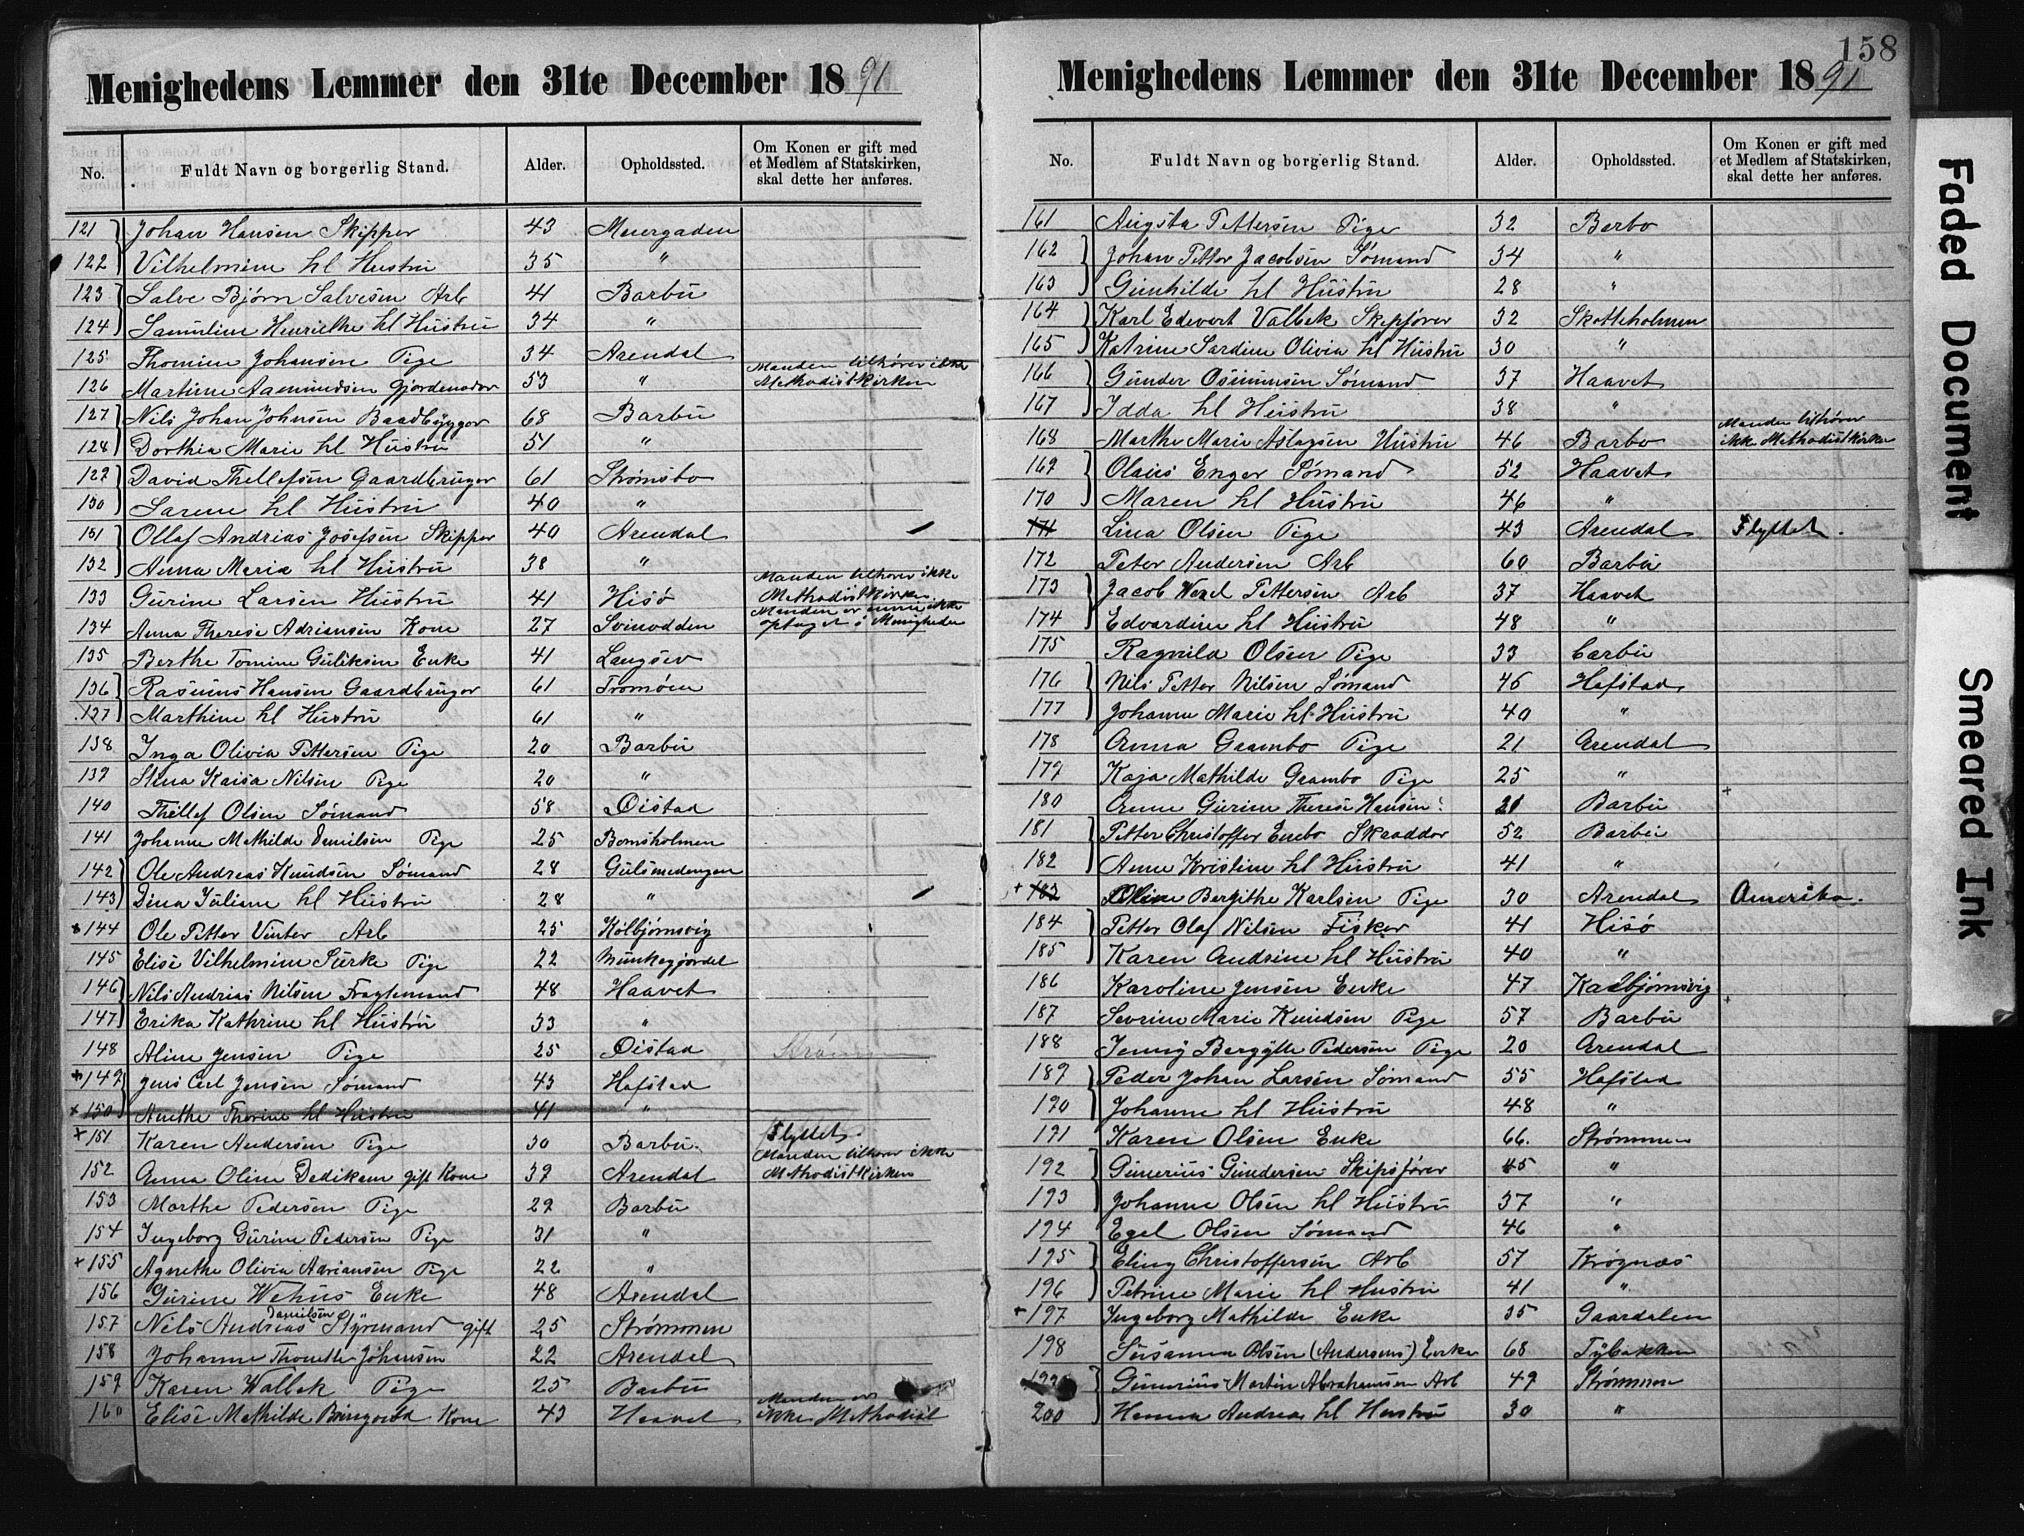 158
Menighedens Lemmer den 31te December 1891
No. Fuldt Navn og borgerlig Stand. Alder. Opholdssted. Om Konen er gift med et Medlem af Statskirken, skal dette her anføres.
121 Johan Hansen Skipper 43
122 Vilhelmine hl Hustru 35 "
123 Salve Bjørn Salvesen Arb 41 Barbu
124 Samuline Henriethe hl Hustru 34 "
125 Thomine Johansen Pige 34 Arendal
126 Martine Aamundsen 53 " Manden tilhører ikke Methodistkirken
127 Nils Johan Johnsen Baadbygger 68 Barbu
128 Dorthia Marie hl Hustru 51 "
129 David Thellefsen Gaardbruger 61 Strømsbo
130 Sarene hl Hustru 40 "
131 Ollaf Andrias Josefsen Skipper 40 Arendal
132 Anna Maria hl Hustru 38 "
133 Gurine Larsen Hustru 41 Hisø Manden tilhører ikke Methodistkirken
134 Anna Therese Adriansen Kone 27 Svinodden Manden er ennu ikke optaget i Menigheden
135 Berthe Tomine Guliksen Enke 41 Langsev
136 Rasmus Hansen Gaardbruger 61 Tromøen
137 Marthine hl Hustru 61 "
138 Inga Olivia Pettersen Pige 20 Barbu
139 Stina Kaisa Nilsen Pige 20 "
140 Thellef Olsen Sømand 58 Øistad
141 Johanne Mathilde Danielsen Pige 25 Bomsholmen
142 Ole Andreas Knudsen Sømand 28 Gulsmedengen
143 Dina Juliane hl Hustru 28 "
144 Ole Petter Vinter Arb 25 Kolbjørnsvig
145 Elise Vilhelmine Surke Pige 22 Munkegjordet
146 Nils Andrias Nilsen Fragtemand 48 Haavet
147 Erika Kathrine hl Hustru 33 "
148 Aline Jensen Pige 25 Øistad
+ 149 Jens Carl Jensen Sømand 43 Hafstad
+ 150 Anethe Thorine hl Hustru 41 "
+ 151 Karen Andersen Pige 30 Barbu. Flyttet.
152 Anna Oline Dedikam gift Kone 39 Arendal Manden tilhører ikke Methodistkirken
153 Marthe Pedersen Pige 29 Barbu
154 Ingeborg Gurine Pedersen Pige 31 "
+ 155 Agnethe Olivia Adriansen Pige 22 "
156 Gurine Wehus Enke 48 Arendal
157 Nils Andreas Danielsen Styrmand gift 25 Strømmen
158 Johanne Thonette Johansen 22 Arendal
159 Karen Walbek Pige 25 Barbu
160 Elise Mathilde Kone 43 Haavet Manden er ikke Methodist
Menighedens Lemmer den 31te December 1891
No. Fuldt Navn og borgerlig Stand. Alder. Opholdssted. Om Konen er gift med et Medlem af Statskirken, skal dette her anføres.
161 Augsta Pettersen Pige 32 Barbo
162 Johan Petter Jacobsen Sømand 34 "
163 Gunhilde hl Hustru 28 "
164 Karl Edevert Valbek Skipsfører 32 Skotteholmen
165 Katrine Sardine Olivia hl Hustru 30 "
166 Gunder Osmunsen Sømand 37 Haavet
167 Idda hl Hustru 38 "
168 Marthe Marie Aslagsen Hustru 46 Barbo Manden tilhører ikke Methodistkirken
169 Olaus Enger Sømand 52 Haavet
170 Maren hl Hustru 46 "
171 Lina Olsen Pige 43 Arendal Flyttet.
172 Peter Andersen Arb 60 Barbu
173 Jacob Pettersen Arb 37 Haavet
174 Edvardine hl Hustru 48 "
175 Ragnild Olsen Pige 33 Barbu
176 Nils Petter Nilsen Sømand 46 Hafstad
177 Johanne Marie hl Hustru 40 "
178 Anna Grambo Pige 21 Arendal
179 Kaja Mathilde Grambo Pige 25 "
180 Anne Gurine Therese Hansen 21 Barbu
181 Petter Christoffer Enebo Skradder 52 Barbu
182 Anne Kristine hl Hustru 41 "
+ 183 Oline Bergithe Karlsen Pige 30 Arendal Amerika.
184 Petter Olaf Nilsen Fisker 41 Hisø
185 Karen Andrine hl Hustru 40 "
186 Karoline Jensen Enke 47 Kolbjørnsvig
187 Sevrine Marie Knudsen Pige 57 Barbu
188 Jenny Bergitte Pedersen Pige 20 Arendal
189 Peder Johan Larsen Sømand 55 Hafstad
190 Johanne hl Hustru 48 "
191 Karen Olsen Enke 66. Strømmen
192 Gunerius Gundersen Skipsfører 45 "
193 Johanne Olsen hl Hustru 37 "
194 Egel Olsen Sømand 46 "
195 Eling Christoffersen Arb 57 Krøgnæs
196 Petrine Marie hl Hustru 41 "
+ 197 Ingeborg Mathilde Enke 35 Gaardalen
198 Susanna Olsen (Andersens) Enke 68 Tybakken
199 Gunerius Martin Abrahamsen Arb 49 Strømmen
200 Hanna Andrea hl Hustru 30 "
Faded Document
Smeared Ink